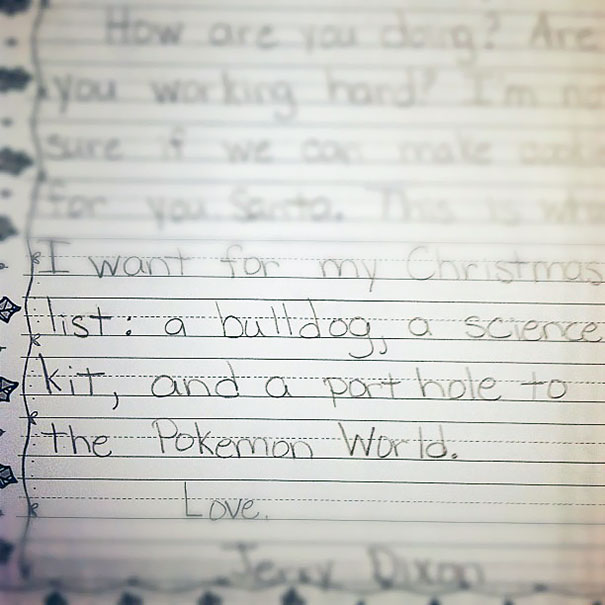 How are you doing? Are
you working hard? I'm no
sure if we can make cooki
for you Santa. This is wha
I want for my Christmas
list: a bulldog, a science
kit, and a port hole to
the Pokemon World.
Love,
Jerry Dixon